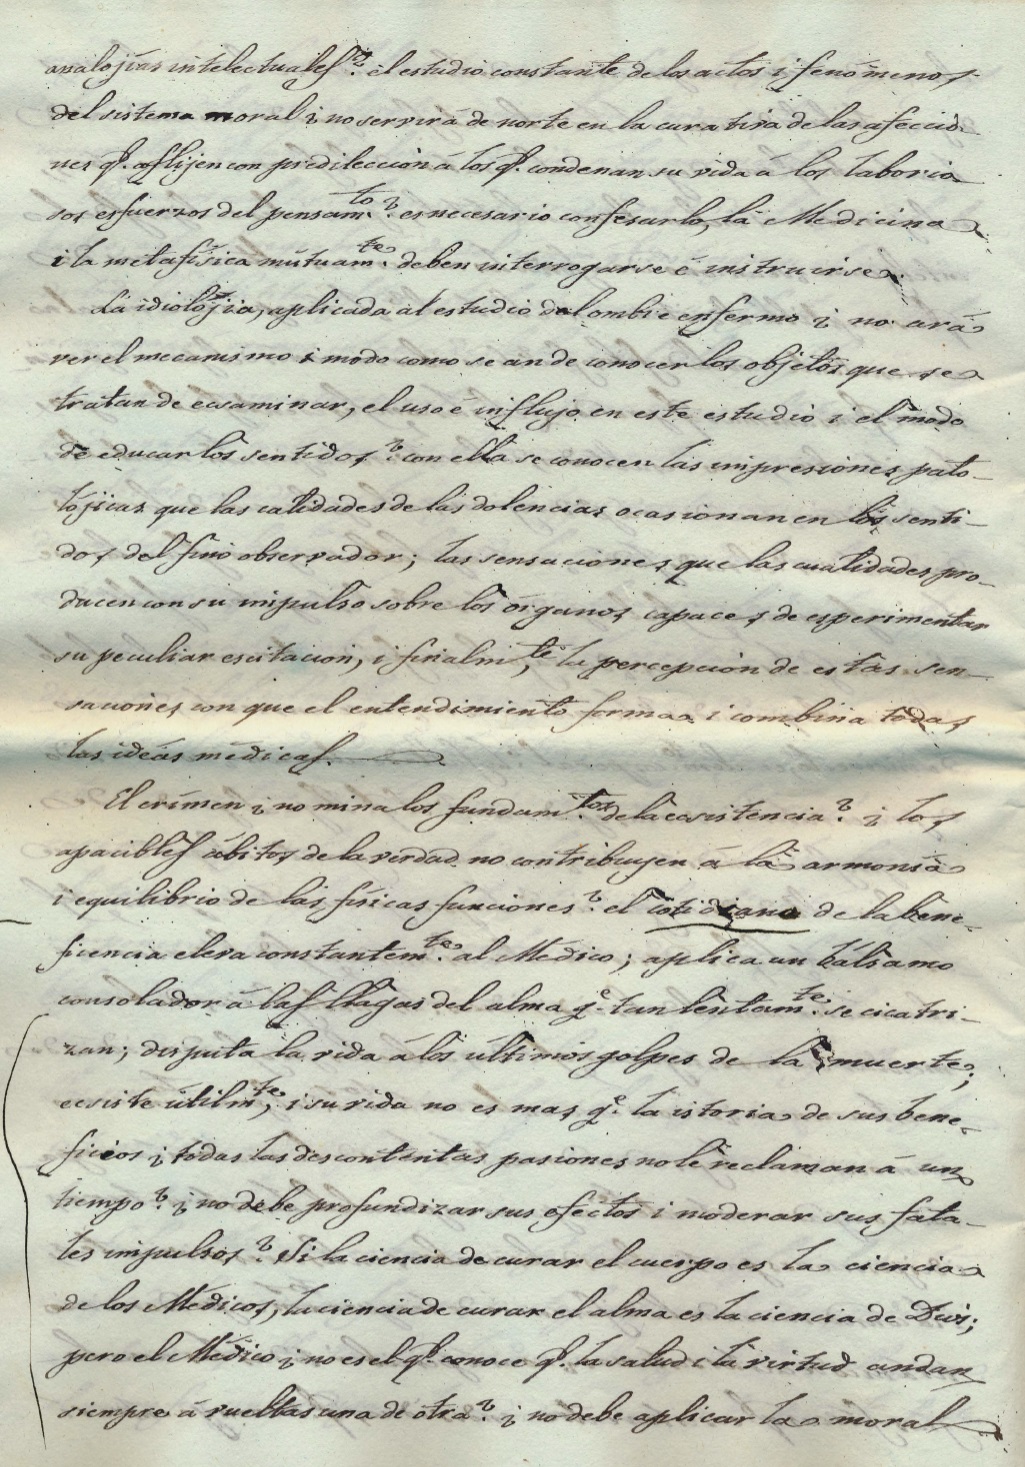 analojías intelectuales? el estudio constante de los actos i fenómenos
del sistema moral ¿no servirá de norte en la curativa de las afeccio-
nes qe. aflijen con predilección á los qe. condenan su vida á los laborio-
sos esfuerzos del pensamto.? es necesario confesarlo, la Medicina
i la metafísica mútuamte. deben interrogarse é instruirse.
La idiolojia, aplicada al estudio del ombre enfermo ¿no ará
ver el mecanismo i modo como se an de conocer los objetos que se
tratan de ecsaminar, el uso é influjo en este estudio i el modo
de educar los sentidos? con ella se conocen las impresiones pato-
lójicas que las calidades de las dolencias ocasionan en los senti-
dos del fino observador; las sensaciones que las cualidades pro-
ducen con su impulso sobre los órganos capaces de esperimentar
su peculiar escitacion, i finalmte, la percepción de estas sen-
saciones con que el entendimiento forma i combina todas
las ideas médicas.
El crímen ¿no mina los fundamtos. de la ecsistencia? ¿los
apacibles ábitos de la verdad no contribuyen á la armonía
i equilibrio de las físicas funciones? el cotidiano de la bene-
ficencia eleva constantemte. al Médico; aplica un bálsamo
consolador á las llagas del alma qe. tan lentamte. se cicatri-
zan; disputa la vida á los últimos golpes de la muerte;
ecsiste útilmte, i su vida no es mas qe. la istoria de sus bene-
ficios ¿todas las descontentas pasiones no le reclaman á un
tiempo? ¿no debe profundizar sus efectos i moderar sus fata-
les impulsos? Si la ciencia de curar el cuerpo es la ciencia
de los Médicos, la ciencia de curar el alma es la ciencia de Dios;
pero el Médico ¿no es el qe. conoce qe. la salud i la virtud andan
siempre á vueltas una de otra? ¿no debe aplicar la moral